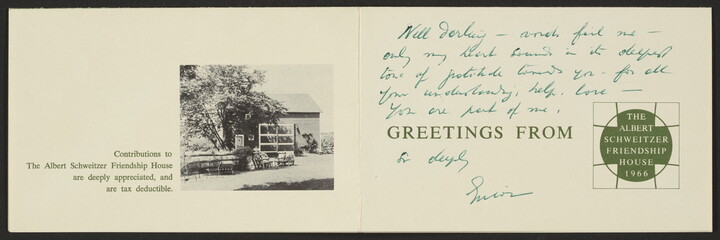 Contributions to
The Albert Schweitzer Friendship House
are deeply appreciated, and
are tax deductible.
Nell Darling – words fail me –
only my heart sounds in its deepest
tone of gratitude towards you – for all
your understanding, help, love –
You are part of me,
GREETINGS FROM
so deeply
THE
ALBERT
SCHWEITZER
FRIENDSHIP
HOUSE
1966